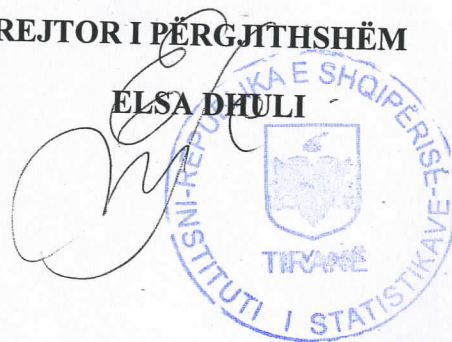 REJTOR I PËRGJITHSHËM
ELSA DHULI
REPUBLIKA E SHQIPËRISË
INSTITUTI I STATISTIKAVE
TIRANË